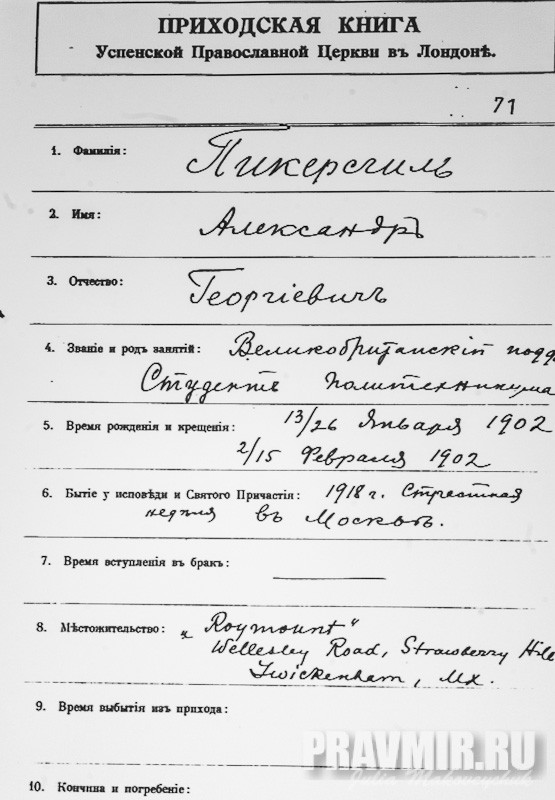 ПРИХОДСКАЯ КНИГА
Успенской Православной Церкви въ Лондонѣ.
71
1. Фамилія: Пикерсгиль
2. Имя: Александръ
3. Отчество: Георгіевичъ
4. Званіе и родъ занятій: Великобританскій подд
Студентъ Политехникума
5. Время рожденія и крещенія: 13/26 Января 1902
2/15 Февраля 1902
6. Бытіе у исповѣди и Святого Причастія: 1918 г. Страстная
недѣля въ Москвѣ.
7. Время вступленія въ бракъ:
8. Мѣстожительство: „Roymount"
Wellesley Road, Strawberry Hill
Twickenham, Mx.
9. Время выбытія изъ прихода:
10. Кончина и погребеніе:
PRAVMIR.RU
Julia Makoveychuk